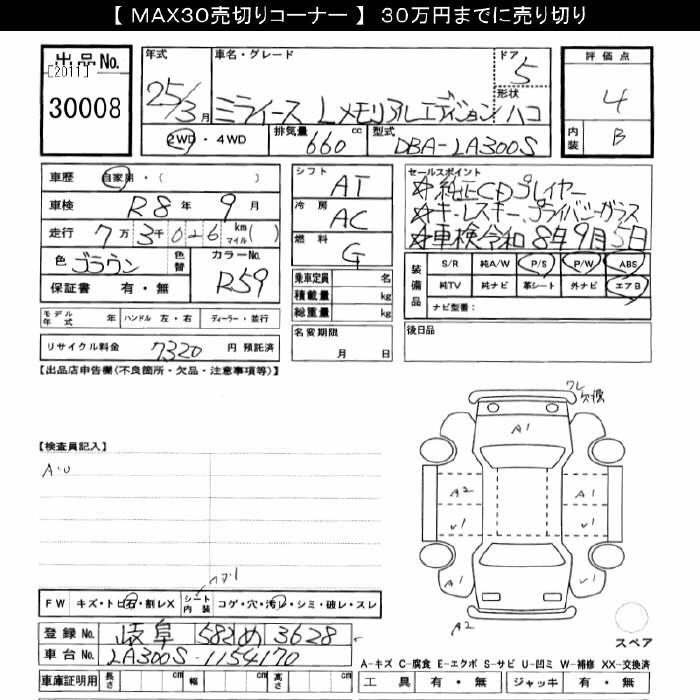 【 MAX30売切りコーナー 】 30万円までに売り切り
出品No.
[2011]
30008
年式
25/3月
車名・グレード
ミライース Lメモリアルエディション
ドア
5
形状
ハコ
2WD ・ 4WD
排気量
660 cc
型式
DBA-LA300S
評価点
4
内装
B
車歴 自家用・( )
車検 R8年 9月
走行 7万3千026 km マイル( )
色 ブラウン
色替
カラーNo. R59
保証書 有・無
シフト AT
冷房 AC
燃料 G
乗車定員 名
積載量 kg
総重量 kg
セールスポイント
☆純正CDプレイヤー
☆キーレスキー、プライバシーガラス
☆車検令和8年9月5日
装備品
S/R 純A/W P/S P/W ABS
純TV 純ナビ 革シート 外ナビ エアB
ナビ型番:
モデル年式 年 ハンドル 左・右 ディーラー・並行
名変期限
月 日
後日品
リサイクル料金 7320 円 預託済
【出品店申告欄(不良箇所・欠品・注意事項等)】
ワレ
欠損
A1
【検査員記入】
A・U
A2
A1
A1
A2
スペア
FW キズ・トビ石・割レX
シート内装 コゲ・穴・汚レ・シミ・破レ・スレ
登録No. 岐阜 582 め 3628
車台No. LA300S-1154170
車庫証明用 長さ cm 幅 cm 高さ cm
A-キズ C-腐食 E-エクボ S-サビ U-凹ミ W-補修 XX-交換済
工具 有・無 ジャッキ 有・無